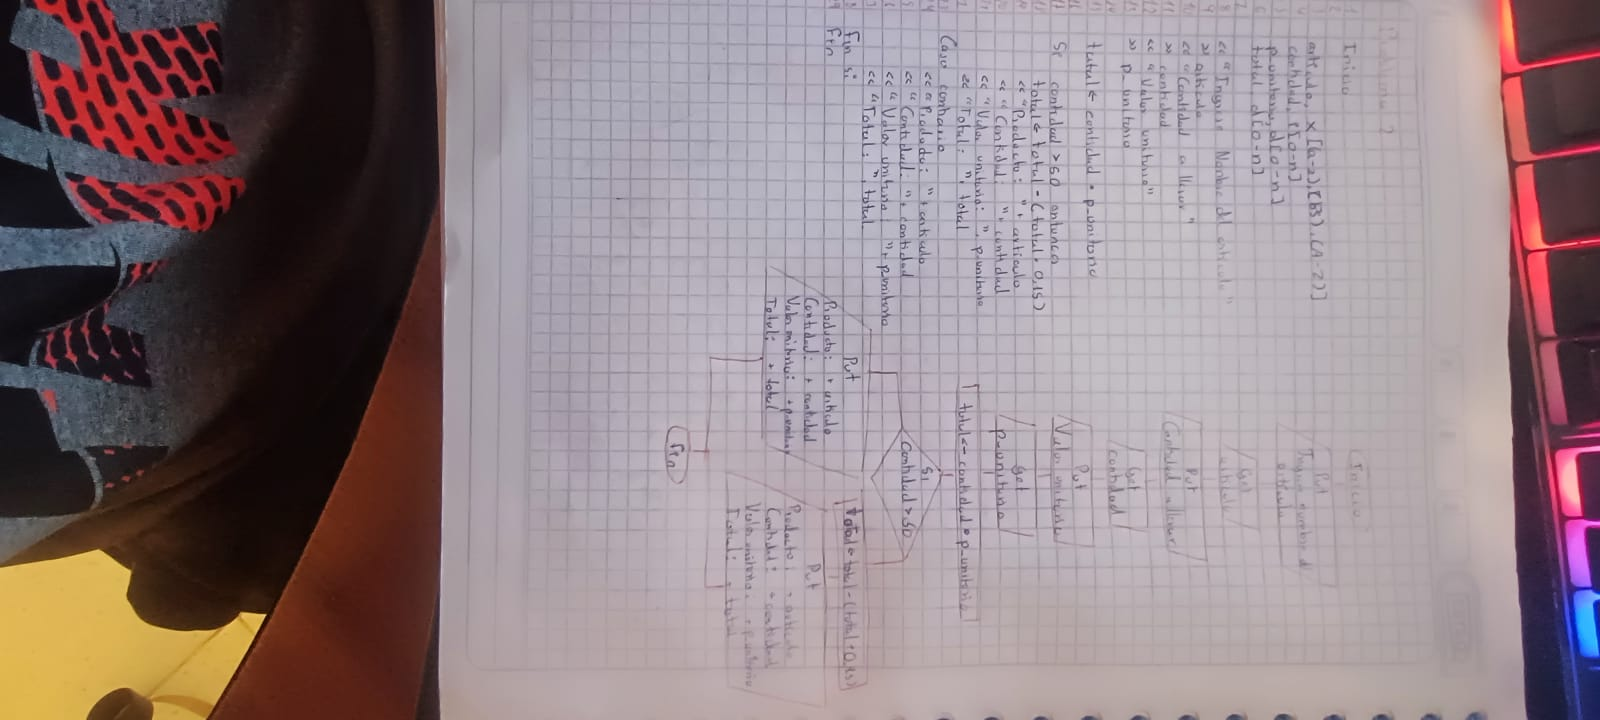 Problema 2
Inicio
articulo, x [(a-z), [B3), (A-Z)]
cantidad, i[0-n]
p_unitario, d[0-n]
total d[0-n]
<< "Ingrese Nombre del articulo"
>> articulo
<< "Cantidad a llevar"
>> cantidad
<< "Valor unitario"
>> p_unitario
total ← cantidad * p_unitario
Si cantidad > 50 entonces
total ← total - (total * 0,15)
<< "Producto: " + articulo
<< "Cantidad: " + cantidad
<< "Valor unitario: " + p_unitario
<< "Total: " + total
Caso contrario
<< "Producto: " + articulo
<< "Cantidad: " + cantidad
<< "Valor unitario: " + p_unitario
<< "Total: " + total
fin si
Fin
Inicio
Put
Ingrese nombre d
articulo
Get
articulo
Put
Cantidad a llevar
Get
cantidad
Put
Valor unitario
get
p_unitario
total ← cantidad * p_unitario
Si
Cantidad > 50
total ← total - (total * 0,15)
Put
Producto: + articulo
Cantidad: + cantidad
Valor unitario: + p_unitario
Total: + total
Put
Producto: + articulo
Cantidad: + cantidad
Valor unitario: + p_unitario
Total: + total
Fin